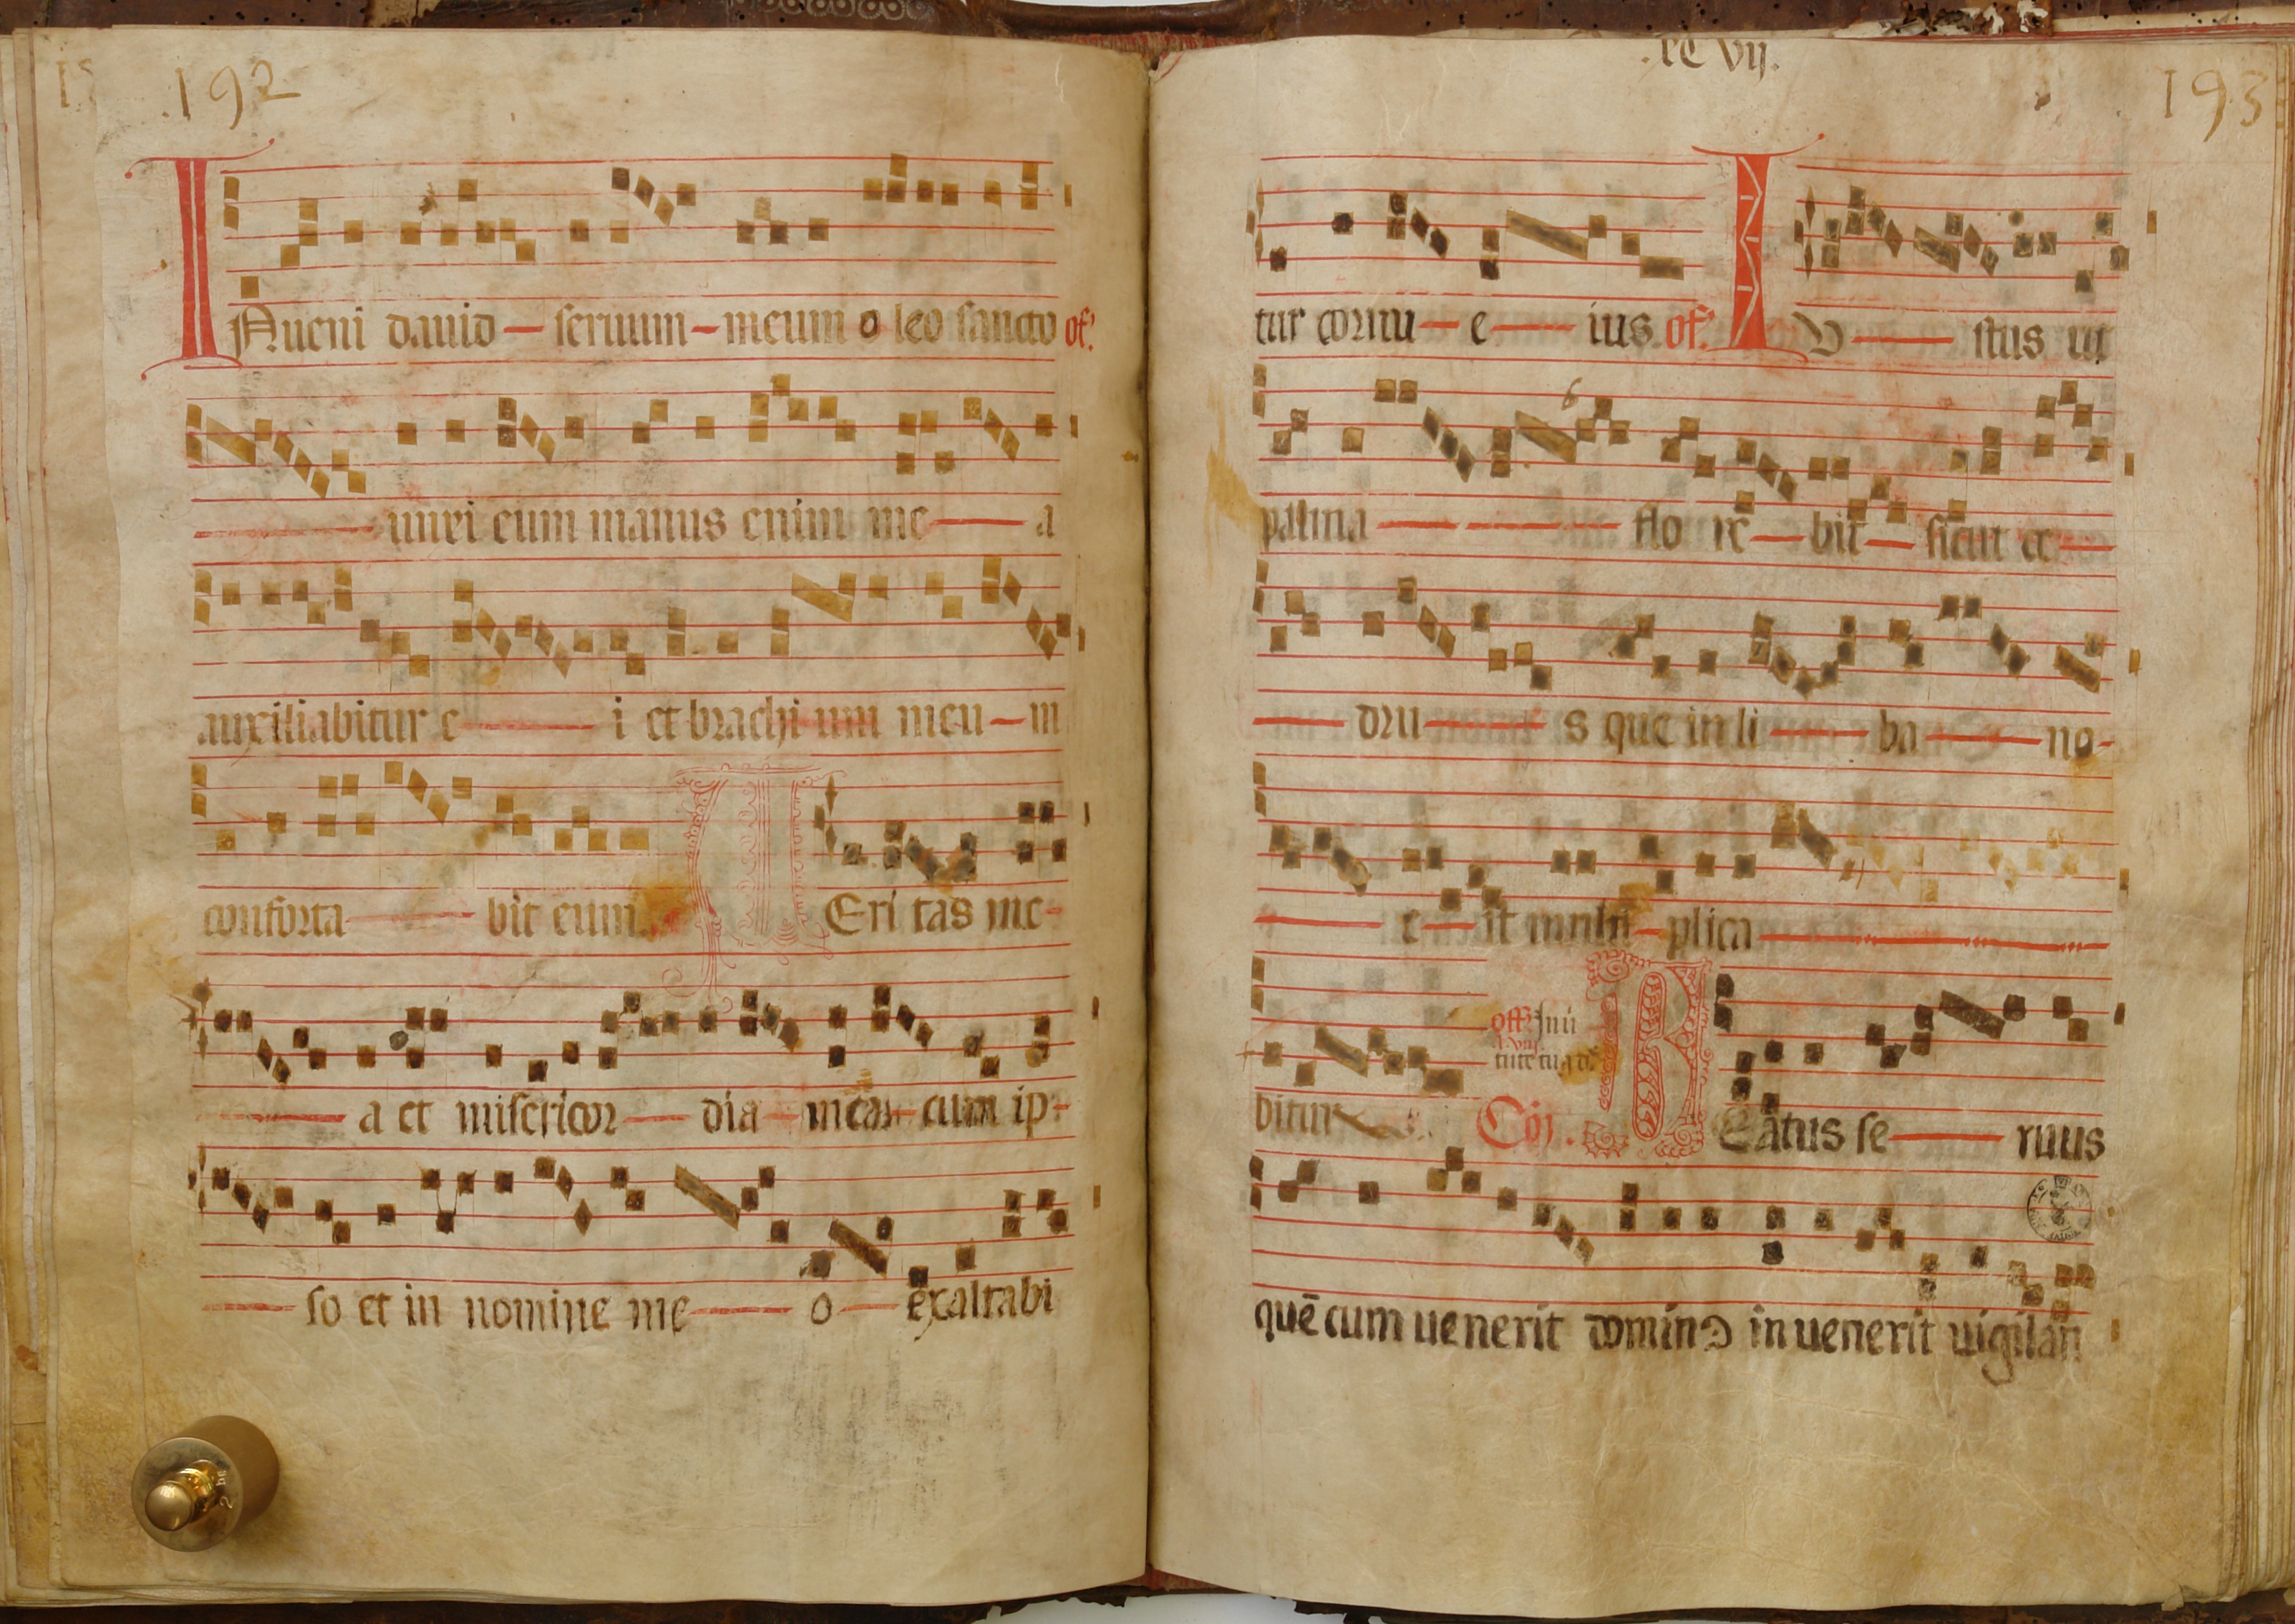 192
INueni dauid — seruum — meum o leo sancto of.
— unxi eum manus enim me — a
auxiliabitur e — i et brachi um meu — m
conforta — bit eum. UEri tas me-
— a et misericor — dia — mea — cum ip-
— so et in nomine me — o — exaltabi
.xcvij.
193
tur cornu — e — ius of. IU — stus ut
palma — flo re — bit — sicut ce —
— dru — s que in li — ba — no-
— e — it multi — plica —
bitur Cõi. BEatus se — ruus
quē cum uenerit dominꝰ inuenerit uigilan